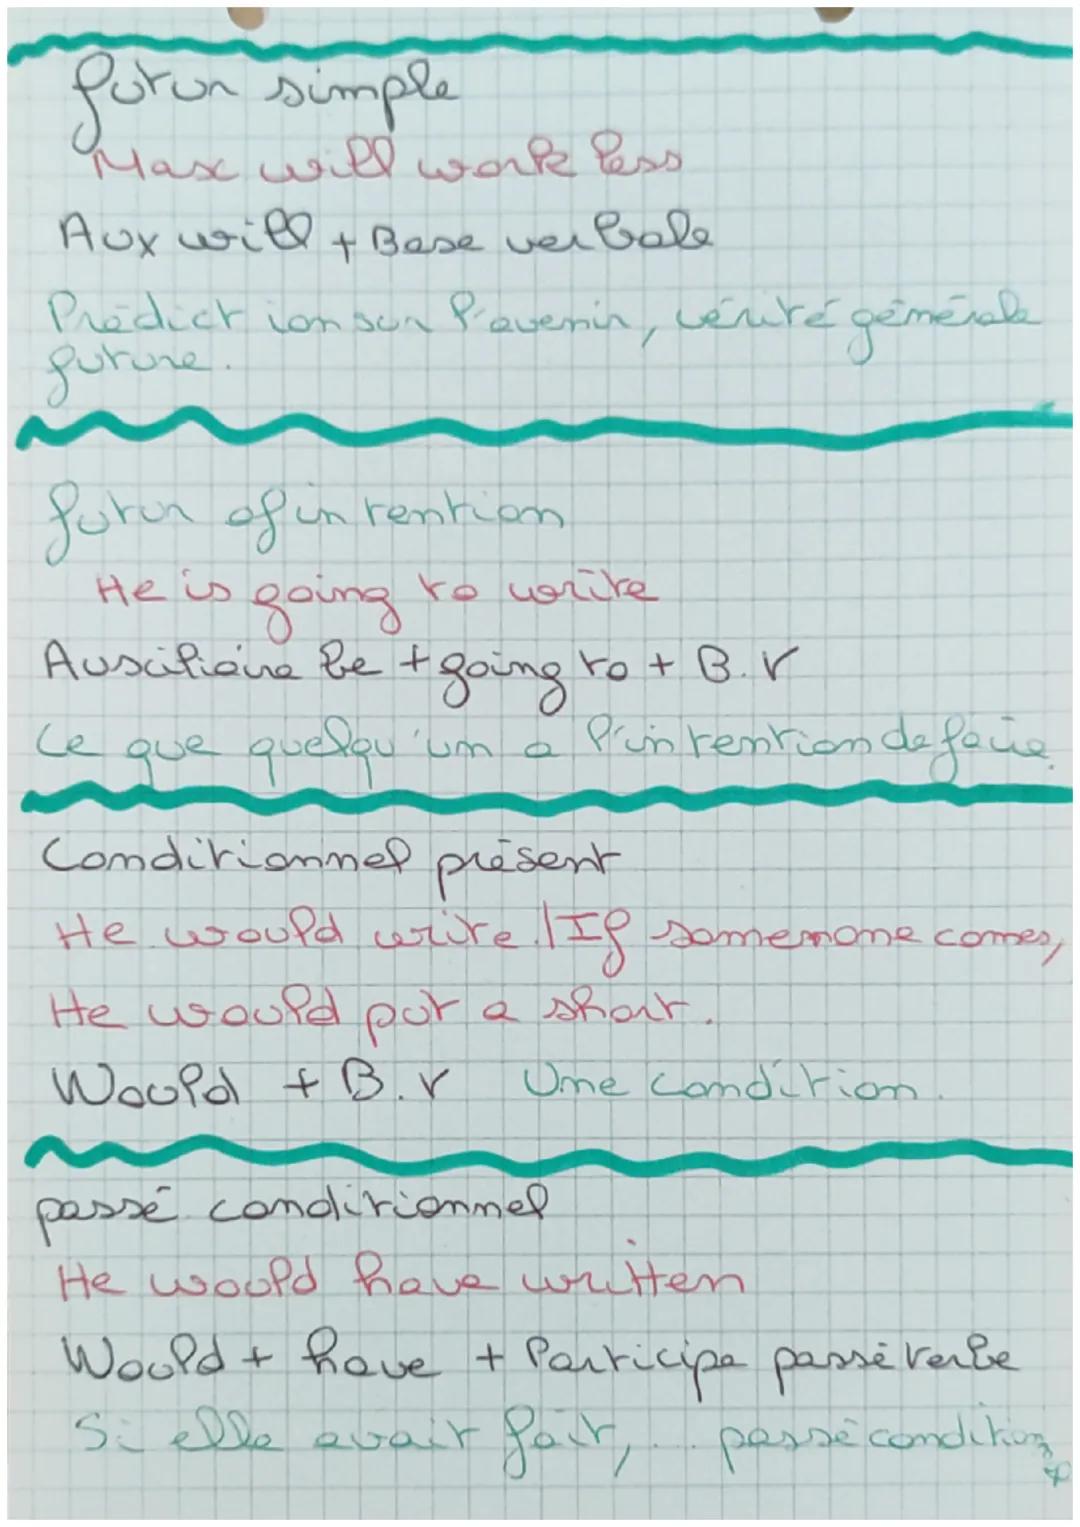 futur simple
Max will work less
Aux will + Base verbale
Prédiction sur l'avenir, vérité générale
future.
futur of intention
He is going to write
Auxiliaire be + going to + B.V
Ce que quelqu'un a l'intention de faire.
Conditionnel présent
He would write. / If somemone comes,
He would put a short.
Would + B.V Une condition.
passé conditionnel
He would have written
Would + have + Participe passé verbe
Si elle avait fait, ... passé condition